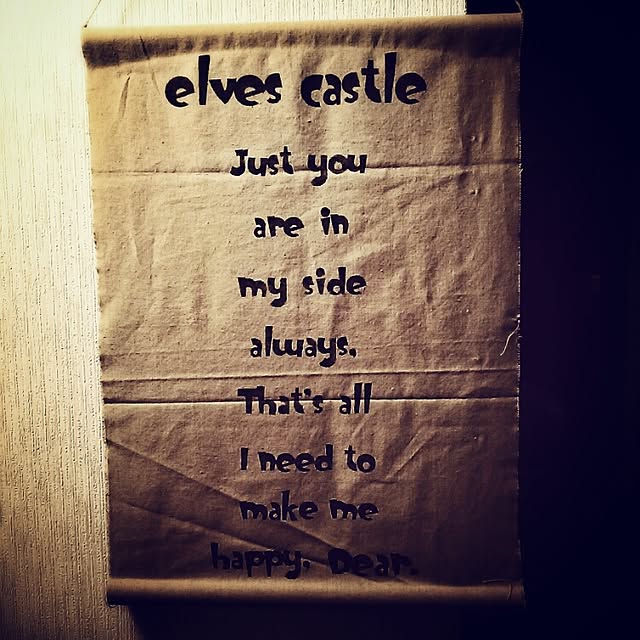 elves castle
Just you
are in
my side
always.
That's all
I need to
make me
happy. Dear.